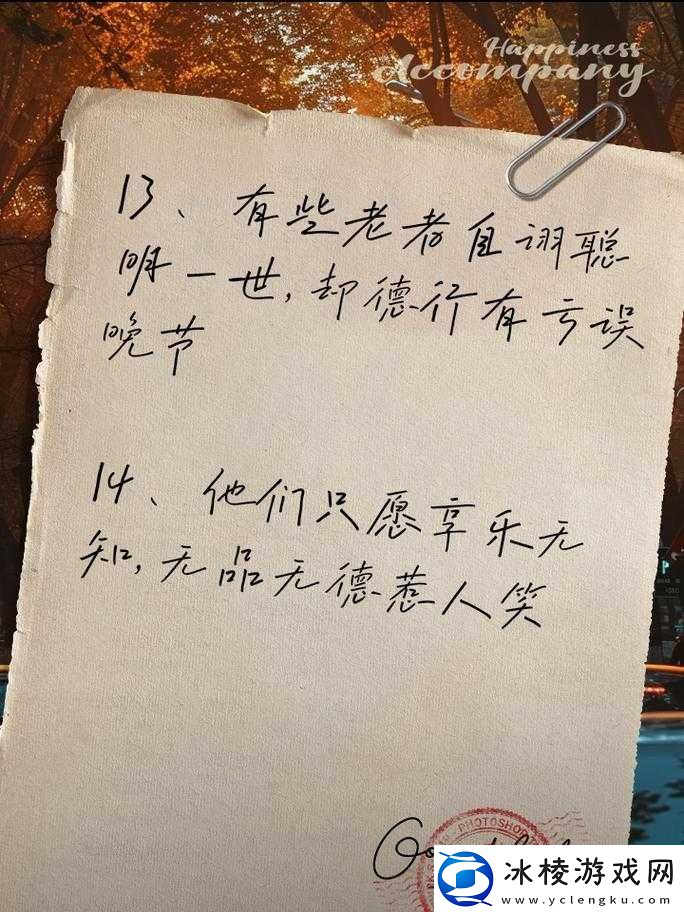 Happiness
Accompany
13、有些老者自诩聪
明一世,却德行有亏误
晚节
14、他们只愿享乐无
知,无品无德惹人笑
PHOTOSHOP
冰棱游戏网
www.yclengku.com